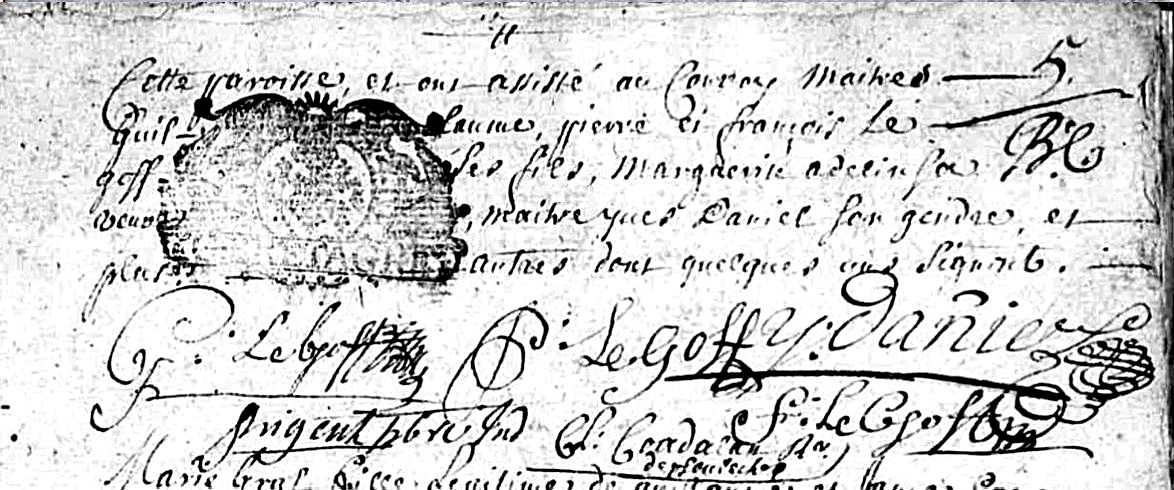 Cette paroisse, et ont assisté au Convoy Maitres 5.
Guil- laume, pierre et françois Le
goff- ses fils, Marguerite adelin sa
veuve, maitre yves Daniel son gendre, et
plus.rs autres dont quelques uns Signent.
G: Le Goff P: Le Goff Y: Daniel
prigent pbre F: Le Goff
Marie fille Legitime de